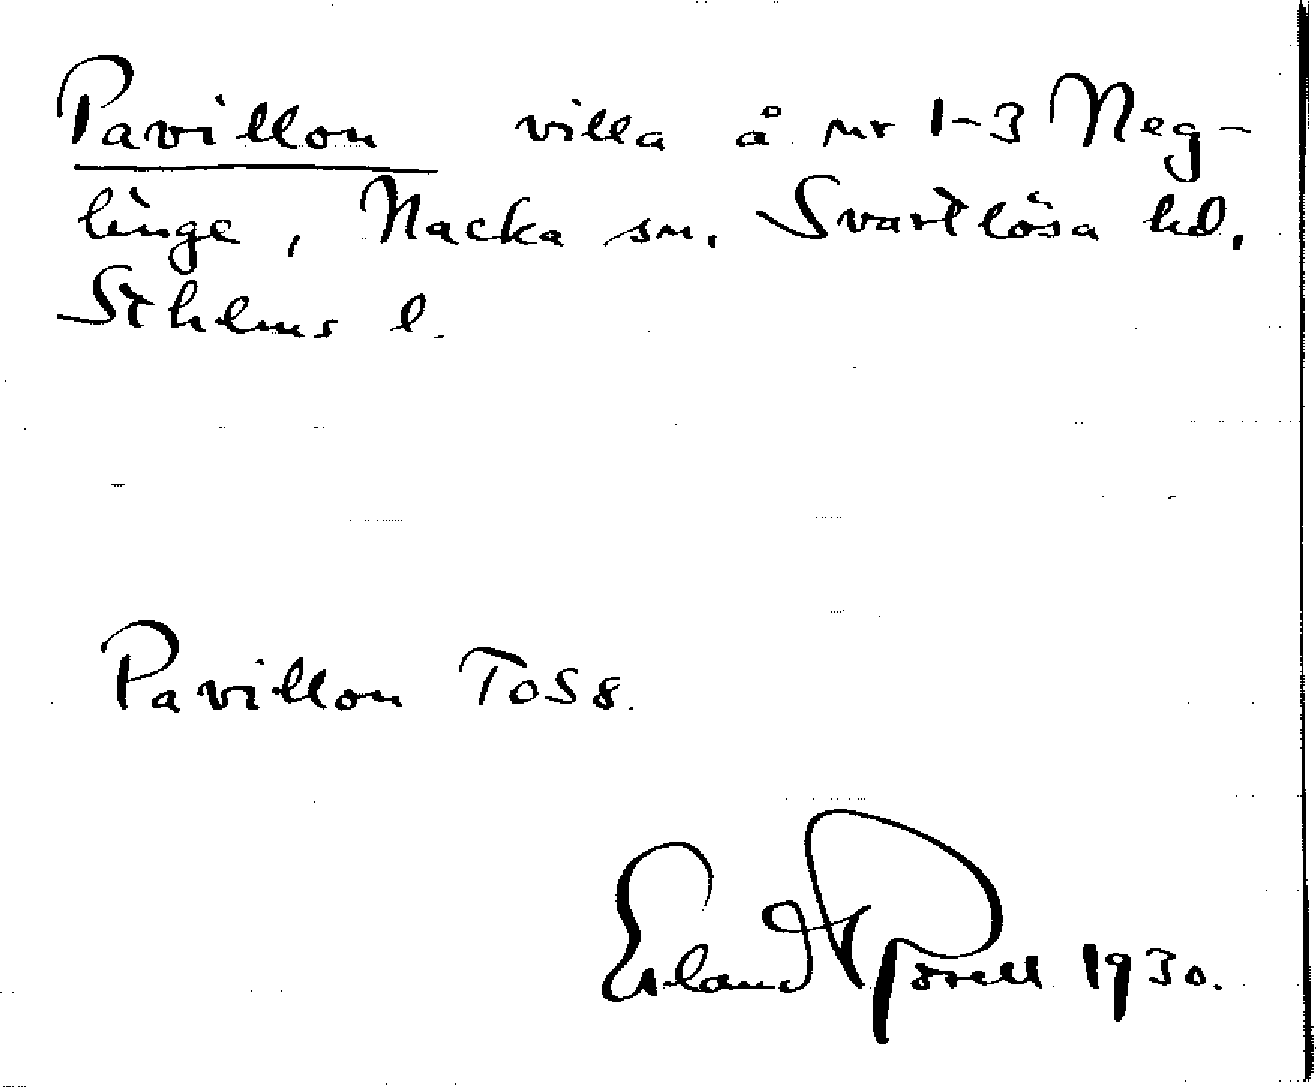 Pavillon villa å nr 1-3 Neg-
linge, Nacka sn. Svartlösa hd.
Sthlms l.
Pavillon ToS 8.
Erland 1930.